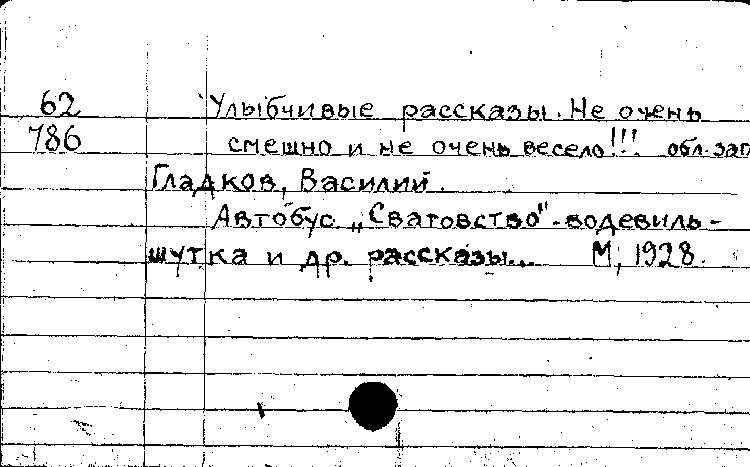 62 Улыбчивые рассказы. Не очень
786 смешно и не очень весело!!! обл. заг.
Гладков, Василий.
Автобус „Сватовство"-водевиль-
шутка и др. рассказы... М, 1928.